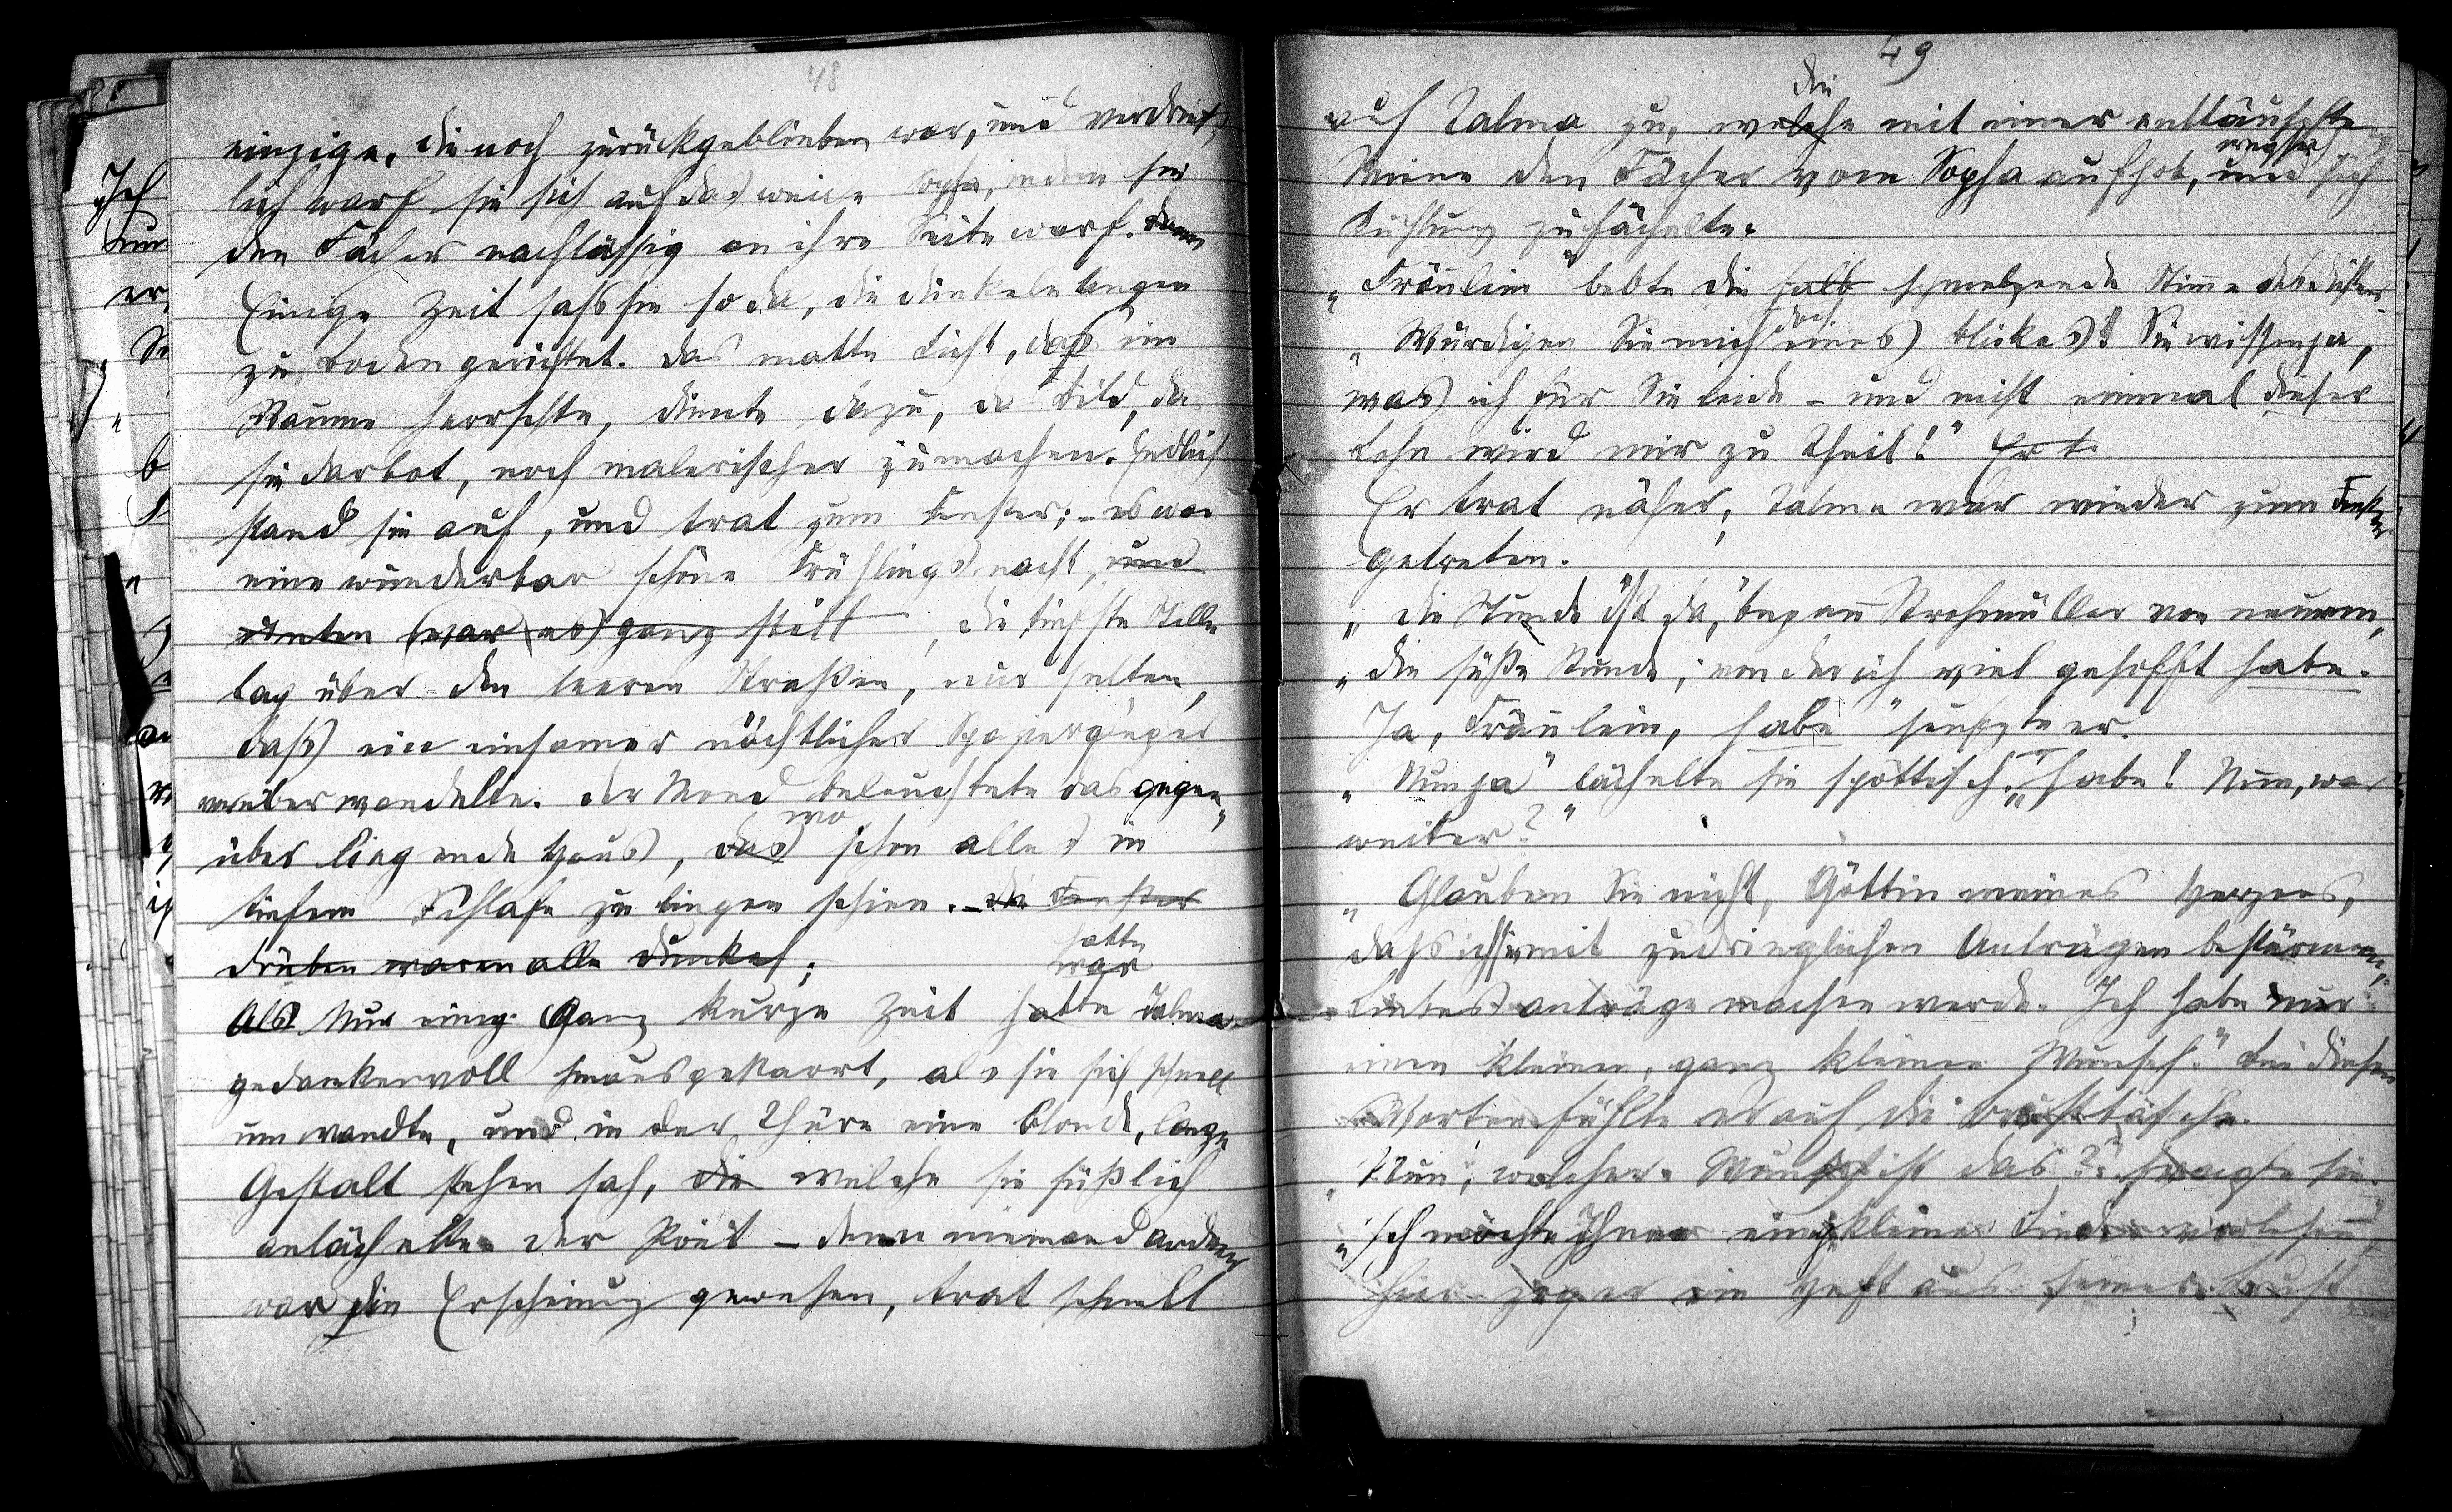 48
einzige, die noch zurückgeblieben war, und verdrieß,
lich warf sie sich auf das weiche Sopha, indem sie
den Fächer nachlässig an ihre Seite warf. dann
Einige Zeit saß sie so da, die dunkeln Augen
zu Boden gerichtet. Das matte Licht, das im
Raume herrschte, diente dazu, das Bild, das
sie darbot, noch malerischer zu machen. Endlich
stand sie auf, und trat zum Fenster; - es war
eine wunderbar schöne Frühlingsnacht, und
unten war es ganz still, die tiefste Stille
lag über den leeren Straßen, nur selten,
daß ein einsamer nächtlicher Spaziergänger
vorüber wandelte. Der Mond beleuchtete das gegen,
wo
über liegende Haus, das schon alles in
tiefem Schlafe zu liegen schien. - die Fenster
drüben waren alle dunkel;
hatte
war
Als Nur einig Ganz kurze Zeit hatte Talma
gedankenvoll hinausgestarrt, als sie sich schnell
umwandte, und in der Thüre eine blonde, lange
Gestalt stehen sah, die welche sie süßlich
anlächelte. Der Poet - denn niemand anders
war die Erscheinung gewesen, trat schnell
49
die
auf Talma zu, welche mit einer enttäuschten
Miene den Fächer vom Sopha aufhob, und sich
Kühlung zufächelte.
„Fräulein" bebte die halb schmelzende Stimme des Dichters
doch
„Würdigen Sie mich eines Blickes! Sie wissen ja,
was ich für Sie leide - und nicht einmal dieser
Lohn wird mir zu Theil!" Er t
Er trat näher, Talma war wieder zum Fenster
getreten.
„die Stunde ist da," begann Strohmüller von neuem,
„die süße Stunde, von der ich viel gehofft habe.
Ja, Fräulein, habe" seufzte er.
„Nun ja" lächelte sie spöttisch. „habe! Nun, was
weiter?"
„Glauben Sie nicht, Göttin meines Herzens,
daß ich Sie mit zudringlichen Anträgen bestürmen,
Liebesanträge machen werde. Ich habe nur
einen kleinen, ganz kleinen Wunsch." Bei diesen
Worten fühlte er auf die Brusttasche.
„Nun, welcher Wunsch ist das?" fragte sie.
„Ich möchte Ihnen einige kleine Lieder vorlesen"
hier zog er ein Heft aus seiner Brust